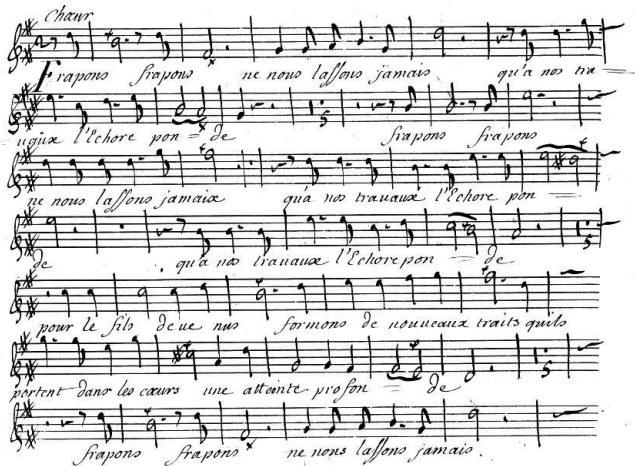 Chœur
Frapons frapons ne nous lassons jamais qu'a nos tra
uaux l'Echore pon = de frapons frapons
ne nous lassons jamaix qu'a nos trauaux l'Echore pon =
de qu'a nos trauaux l'Echore pon = de
pour le fils de ue nus formons de nouueaux traits quils
portent dans les cœurs une atteinte profon = de
frapons frapons ne nous lassons jamais.